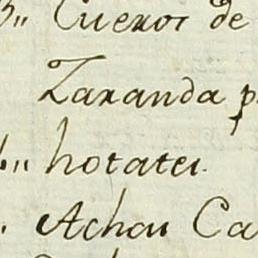 Cueros de
Zaranda p
hotatei.
Achai Ca